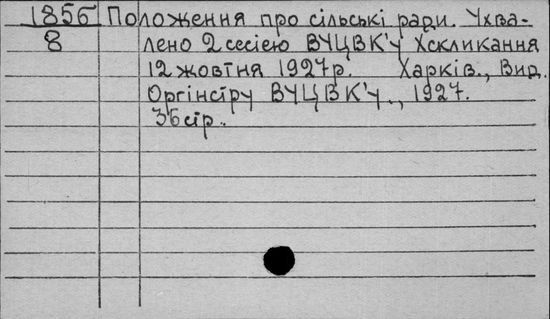 1856 Положення про сільські ради. Ухва-
8 лено 2 сесією ВУЦВК'у X скликання
12 жовтня 1927 р. Харків., Вид.
Оргінстру ВУЦВК'у., 1927.
36 стр..